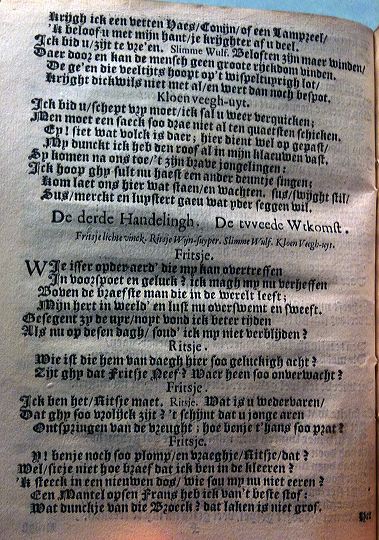 Krijgh ick een vetten Haes/Conijn/of een Lampzeel/
'k Beloof u met mijn hant/je krijghter af u deel.
Ick bid u/zijt te vre'en. Slimme Wulf. Beloften zijn maer winden/
Daer door en kan de mensch geen groote rijckdom vinden.
De ge'en die veeltijts hoopt op't wispeltuurigh lot/
Krijght dickwils niet met al/en wert dan noch bespot.
Kloen veegh-uyt.
Ick bid u/schept vry moet/ick sal u weer verquicken;
Men moet een saeck soo drae niet al ten quaetsten schicken.
Ey! siet wat volck is daer; hier dient wel op gepast/
My dunckt ick heb den roof al in mijn klaeuwen vast.
Sy komen na ons toe/'t zijn brave jongelingen:
Ick hoop ghy sult nu haest een ander deuntje singen;
Kom laet ons hier wat staen/en wachten. sus/swijght stil/
Sus/merckt en luystert gaeu wat yder seggen wil.
De derde Handelingh. De tvveede Wtkomst.
Fritsje lichte vinck. Ritsje Wijn-suyper. Slimme Wulf. Kloen Veegh-uyt.
Fritsje.
Wie isser op der aerd' die my kan overtreffen
In voorspoet en geluck? ick magh my nu verheffen
Boven de braefste man die in de werelt leeft;
Mijn hert in weeld' en lust nu overswemt en sweeft.
Gesegent zy de uyr/nopt vond ick beter tijden
Als nu op desen dagh/ soud' ick my niet verblijden?
Ritsje.
Wie ist die hem van daegh hier soo geluckigh acht?
Zijt ghy dat Fritsje Neef? Waer heen soo onverwacht?
Fritsje.
Ick ben het/Ritsje maet. Ritsje. Wat is u wedervaren/
Dat ghy soo vrolijck zijt? 't schijnt dat u jonge aren
Ontspringen van de vreught; hoe benje t'hans soo prat?
Fritsje.
Y! benje noch soo plomp/en vraeghje/Ritsje/dat?
Wel/sieje niet hoe braef dat ick ben in de kleeren?
'k Steeck in een nieuwen dos/wie sou my nu niet eeren?
Een Mantel opsen Frans heb ick van't beste stof:
Wat dunckje van die Broeck? dat laken is niet grof.